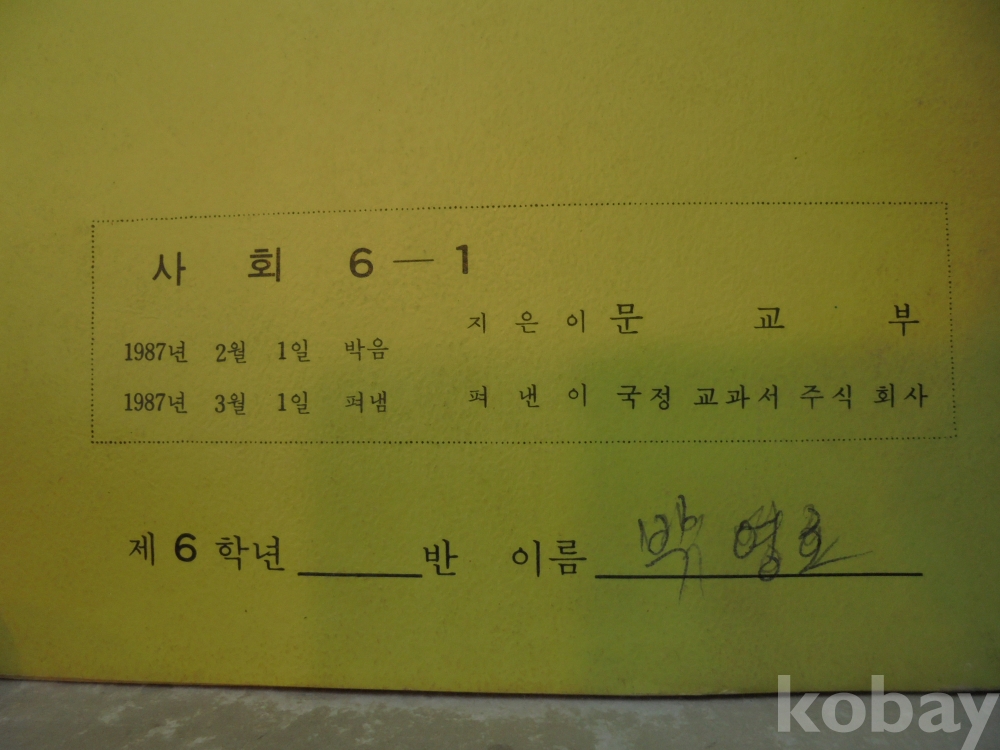 사 회 6－1
지 은 이 문 교 부
1987년 2월 1일 박음
1987년 3월 1일 펴냄 펴 낸 이 국정 교과서 주식 회사
제 6 학년 반 이름 영호
kobay